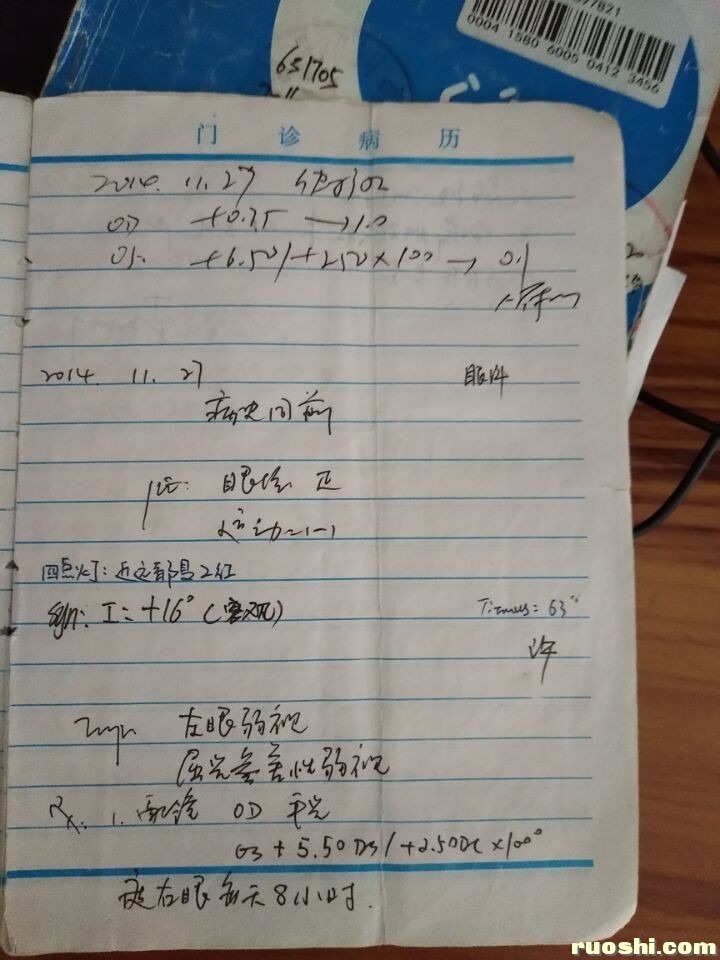 77821
0004 1580 6005 0412 3456
631705
门诊病历
2014. 11. 27
OD +0.75 → 1.0
OS. +6.50/+250×100 → 0.1
2014. 11. 27 眼科
病史同前
PE: 眼位 正
运动:(-)
四点灯: 近远都是2红
Syn: I=+16° (客观) Titmus= 63"
许
Imp. 左眼弱视
屈光参差性弱视
Rx: 1. 配镜 OD 平光
OS +5.50DS/+2.50DC×100°
遮右眼每天8小时.
ruoshi.com